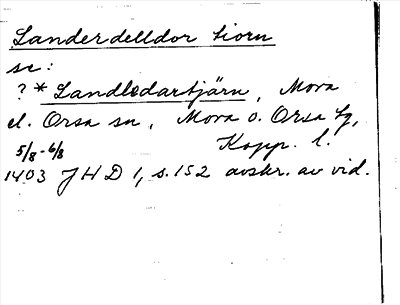 Landerdelldor tiorn
se:
? * Landledartjärn, Mora
el. Orsa sn, Mora o. Orsa tg,
5/8-6/8 Kopp. l.
1403 JHD 1, s. 152 avskr. av vid.